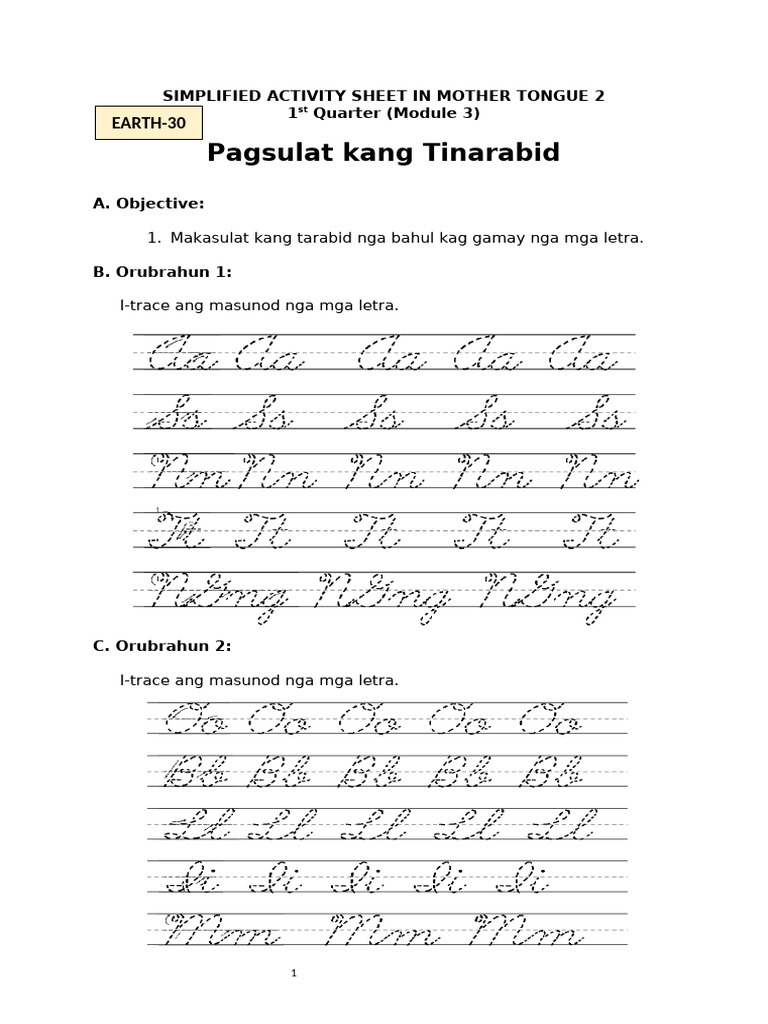 SIMPLIFIED ACTIVITY SHEET IN MOTHER TONGUE 2
1st Quarter (Module 3)
EARTH-30
Pagsulat kang Tinarabid
A. Objective:
1. Makasulat kang tarabid nga bahul kag gamay nga mga letra.
B. Orubrahun 1:
I-trace ang masunod nga mga letra.
Aa Aa Aa Aa Aa
Ss Ss Ss Ss Ss
Nn Nn Nn Nn Nn
Tt Tt Tt Tt Tt
NGng NGng NGng
C. Orubrahun 2:
I-trace ang masunod nga mga letra.
Oo Oo Oo Oo Oo
Bb Bb Bb Bb Bb
Ll Ll Ll Ll Ll
Ii Ii Ii Ii Ii
Mm Mm Mm
1